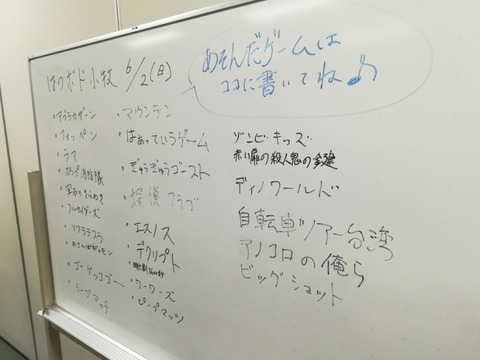 はのボド小牧 6/2(日)
あそんだゲームは
ココに書いてね♪
・アラカザーン
・フォッペン
・ラマ
・クルセイダーズ
・ソクラテラ
・ゴーゲッコゴー
・シープマッチ
・マウンテン
・はぁっていうゲーム
・ぎゅうぎゅうゴースト
・探偵クラブ
・エスノス
・デクリプト
・ワーワーズ
・ピープマッツ
ゾンビキッズ
赤い扉の殺人鬼の鍵
ディノワールド
自転車ツアー台湾
アノコロの俺ら
ビッグショット